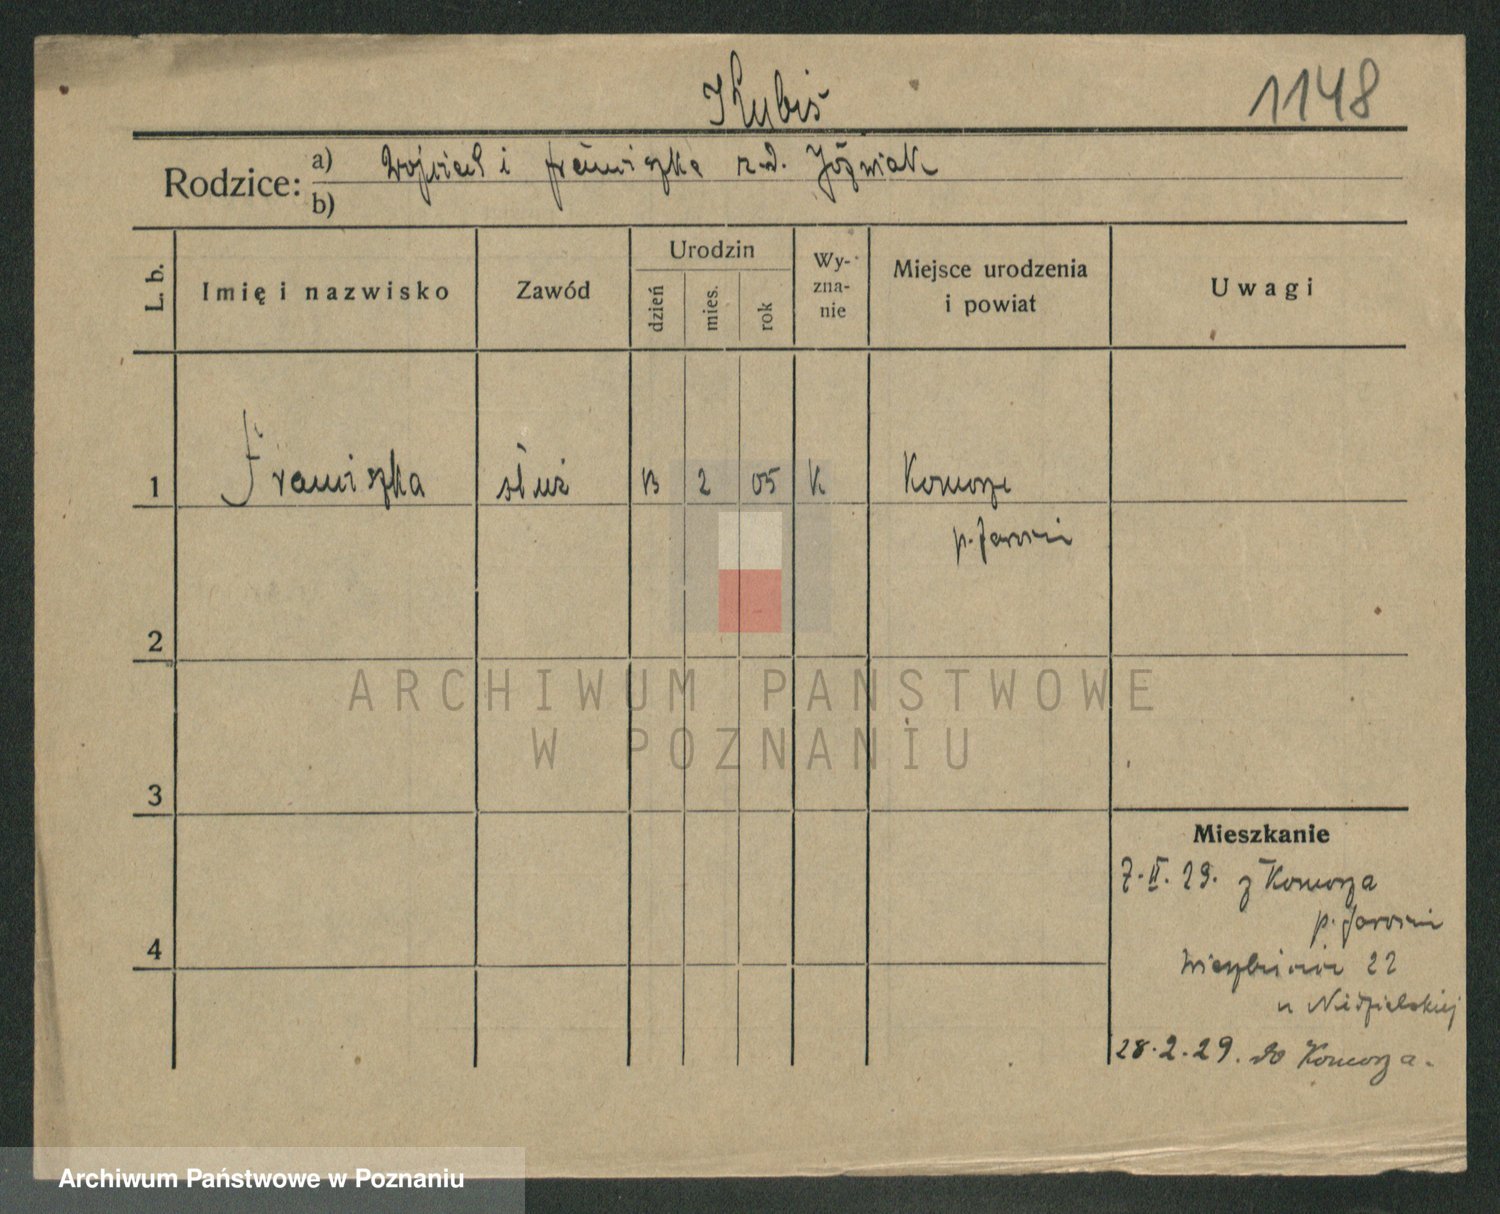 Kubiś
1148
Rodzice: a) Wojciech i Franciszka z d. Jóźwiak
b)
L. b.
Imię i nazwisko
Zawód
Urodzin
dzień
mies.
rok
Wy-
zna-
nie
Miejsce urodzenia
i powiat
Uwagi
1 Franciszka służ 13 2 05 K Komorze
p. Jarocin
2
3
4
ARCHIWUM PAŃSTWOWE
W POZNANIU
Mieszkanie
7. II. 29. z Komorza
p. Jarocin
22
u Niedzielskiej
28. 2. 29. do Komorza.
Archiwum Państwowe w Poznaniu